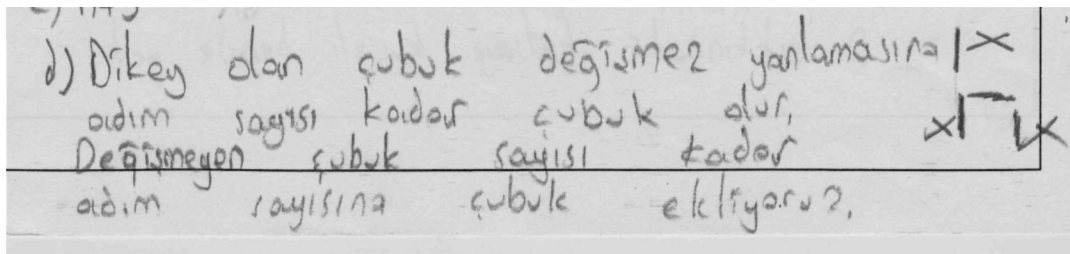 d) Dikey olan çubuk değişmez yanlamasına
adım sayısı kadar çubuk olur.
Değişmeyen çubuk sayısı kadar
adım sayısına çubuk ekliyoruz.